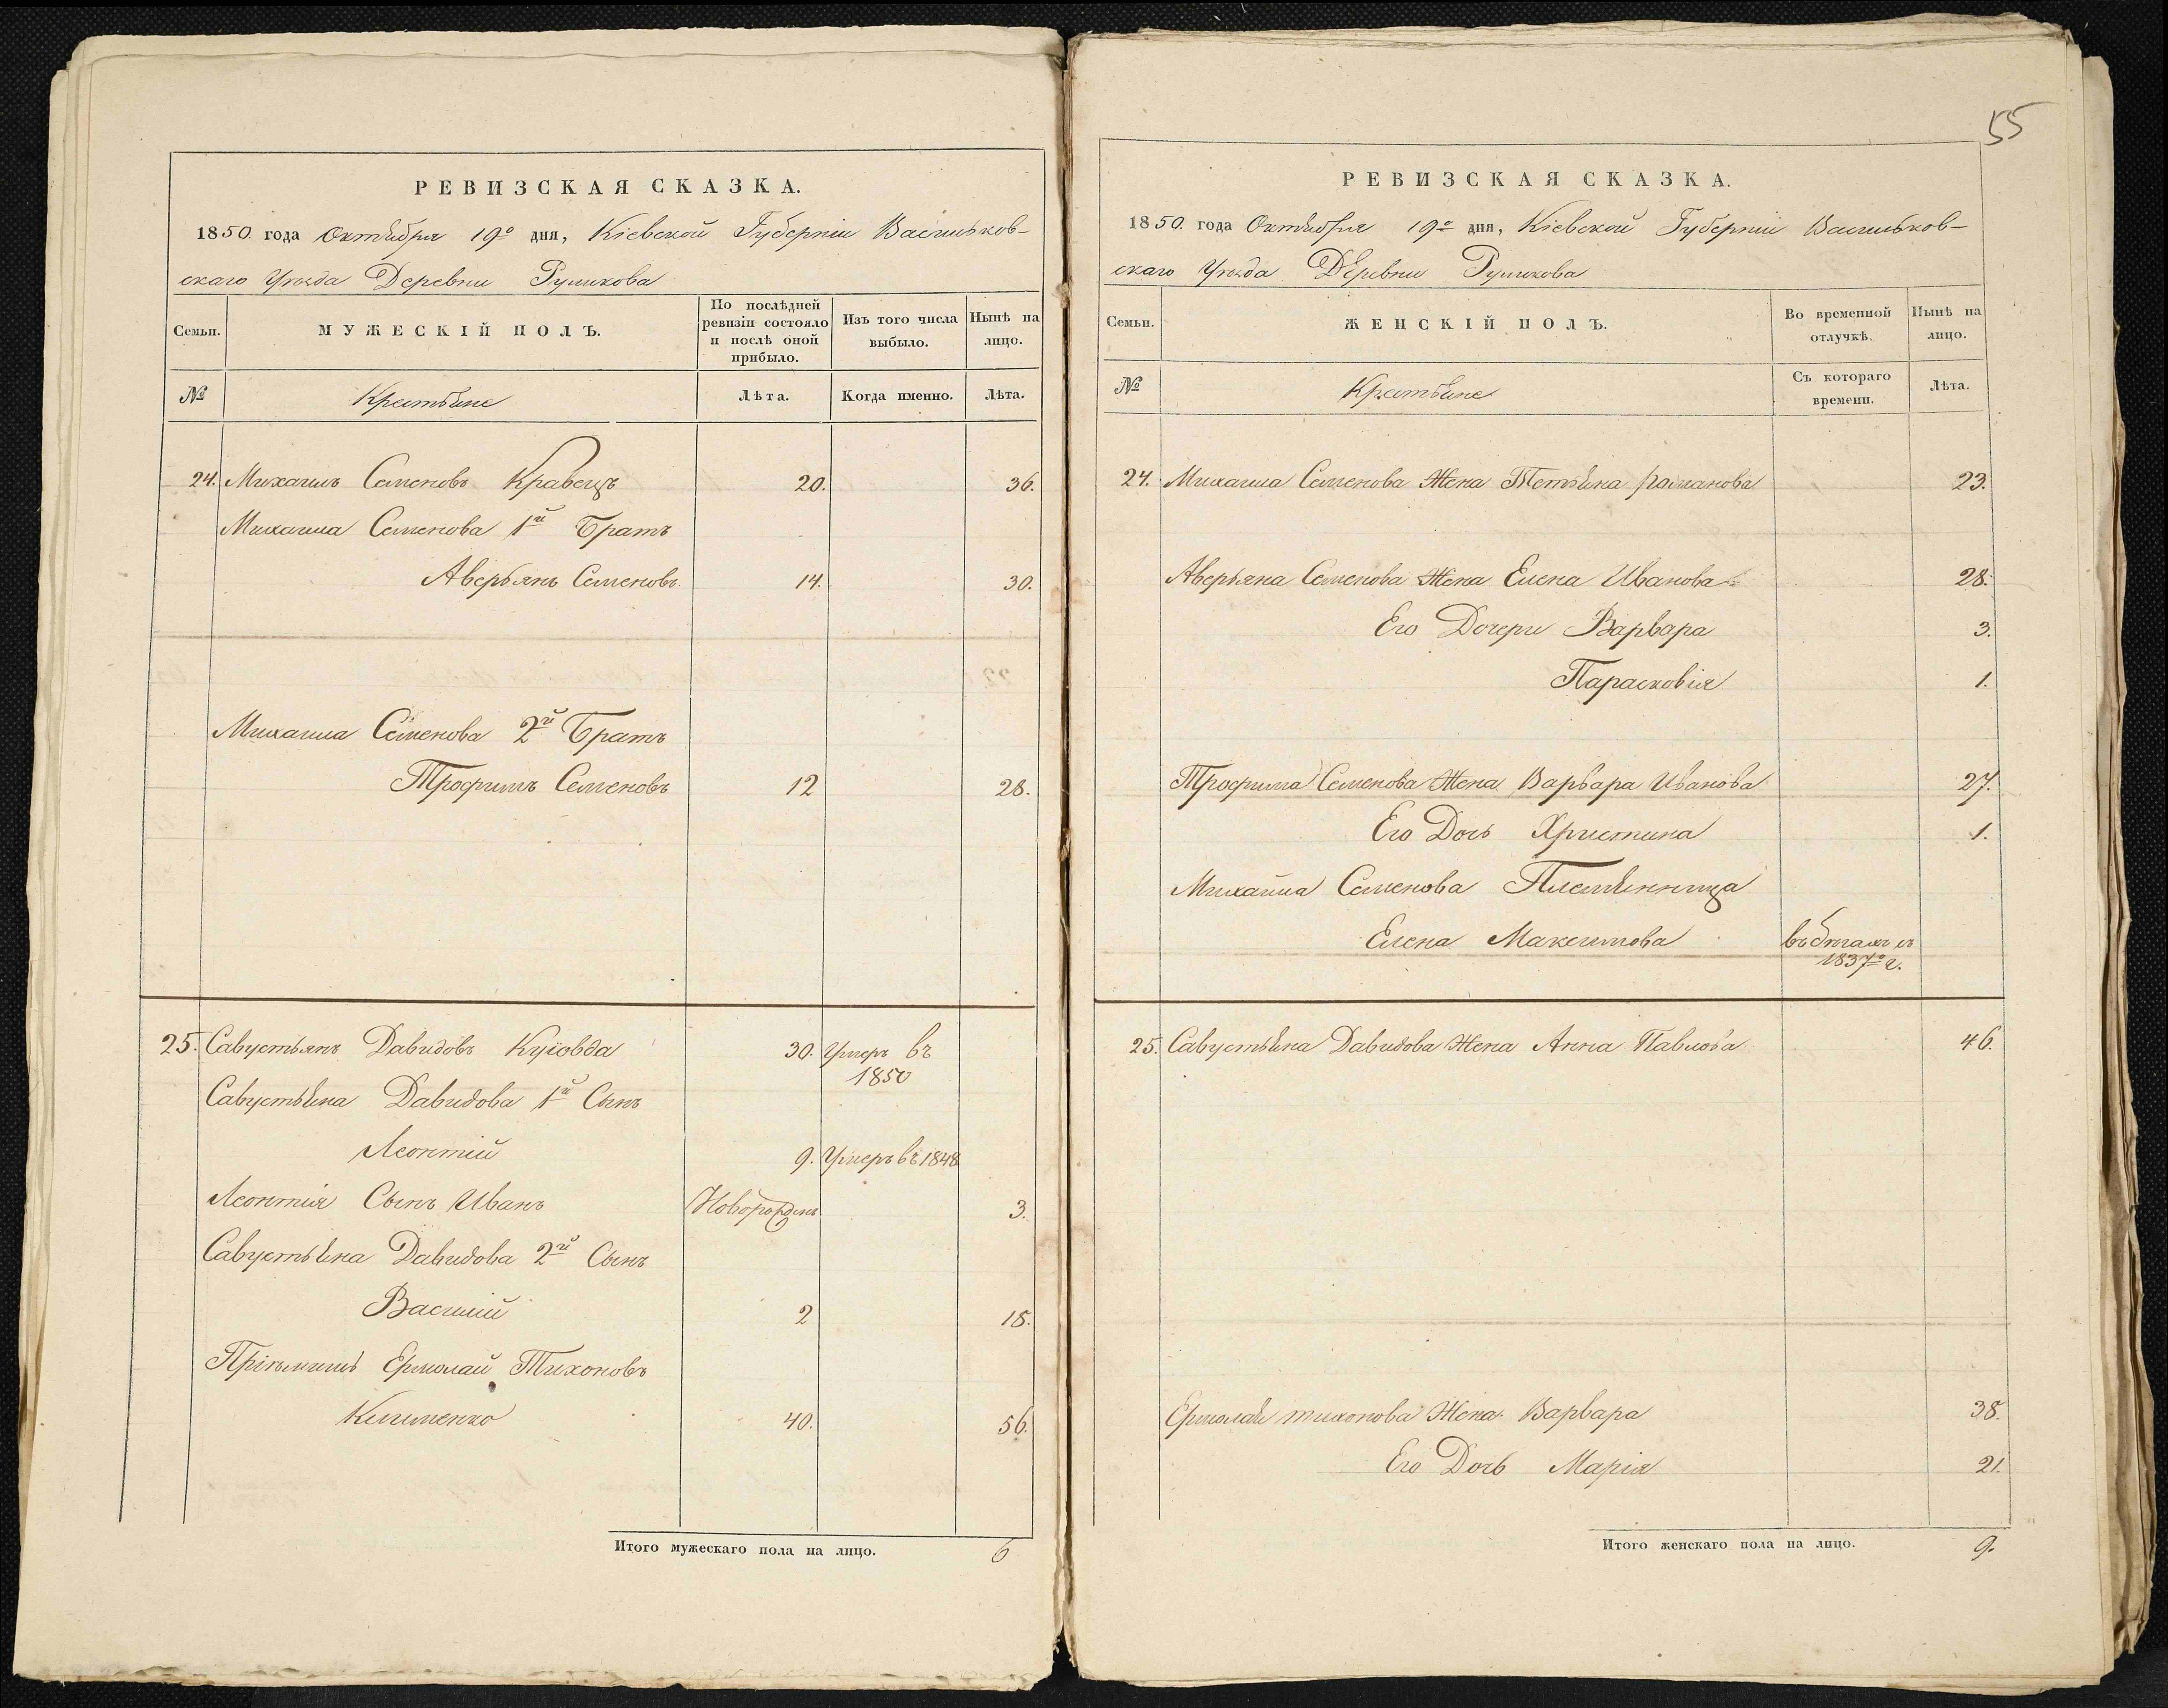 РЕВИЗСКАЯ СКАЗКА.
1850 года Октября 19го дня, Кіевской Губерніи Васильков-
скаго Уѣзда Деревни Руликова
Семьи.
МУЖЕСКІЙ ПОЛЪ.
По послѣдней
ревизіи состояло
и послѣ оной
прибыло.
Изъ того числа
выбыло.
Нынѣ на
лицо.
№ Крестьяне Лѣта. Когда именно. Лѣта.
24. Михаилъ Семеновъ Кравецъ 20. 36.
Михаила Семенова 1й Братъ
Аверьянъ Семеновъ 14. 30.
Михаила Семенова 2й Братъ
Трофимъ Семеновъ 12 28.
25. Савустьянъ Давидовъ Куіовда 30. Умеръ въ
1850
Савустьяна Давидова 1й Сынъ
Леонтій 9. Умеръ въ 1848
Леонтія Сынъ Иванъ Новорожденъ 3.
Савустьяна Давидова 2й Сынъ
Василій 2 18.
Пріемышъ Ермолай Тихоновъ
Клименко 40. 56.
Итого мужескаго пола на лицо. 6
55
РЕВИЗСКАЯ СКАЗКА.
1850. года Октября 19го дня, Кіевской Губерніи Васильков-
скаго Уѣзда Деревни Руликова
Семьи.
ЖЕНСКІЙ ПОЛЪ.
Во временной
отлучкѣ.
Нынѣ на
лицо.
№ Крестьяне
Съ котораго
времени.
Лѣта.
24. Михаила Семенова Жена Тетьяна Романова 23.
Аверьяна Семенова Жена Елена Иванова 28.
Его Дочери Варвара 3.
Парасковія 1.
Трофима Семенова Жена Варвара Иванова 27.
Его Дочь Христина 1.
Михайла Семенова Племянница
Елена Максимова въ бѣгахъ съ
1837го г.
25. Савустьяна Давидова Жена Анна Павлова 46.
Ермолая тихонова Жена Варвара 38.
Его Дочь Марія 21.
Итого женскаго пола на лицо. 9.